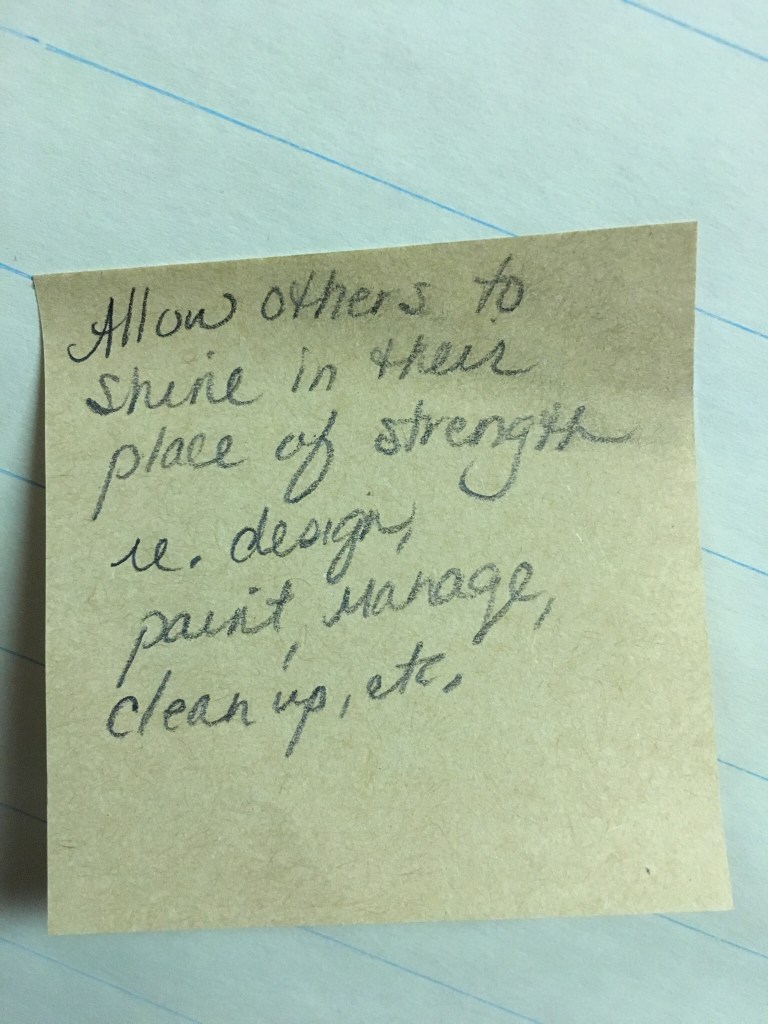 Allow others to
shine in their
place of strength
ie. design,
paint, manage,
clean up, etc.